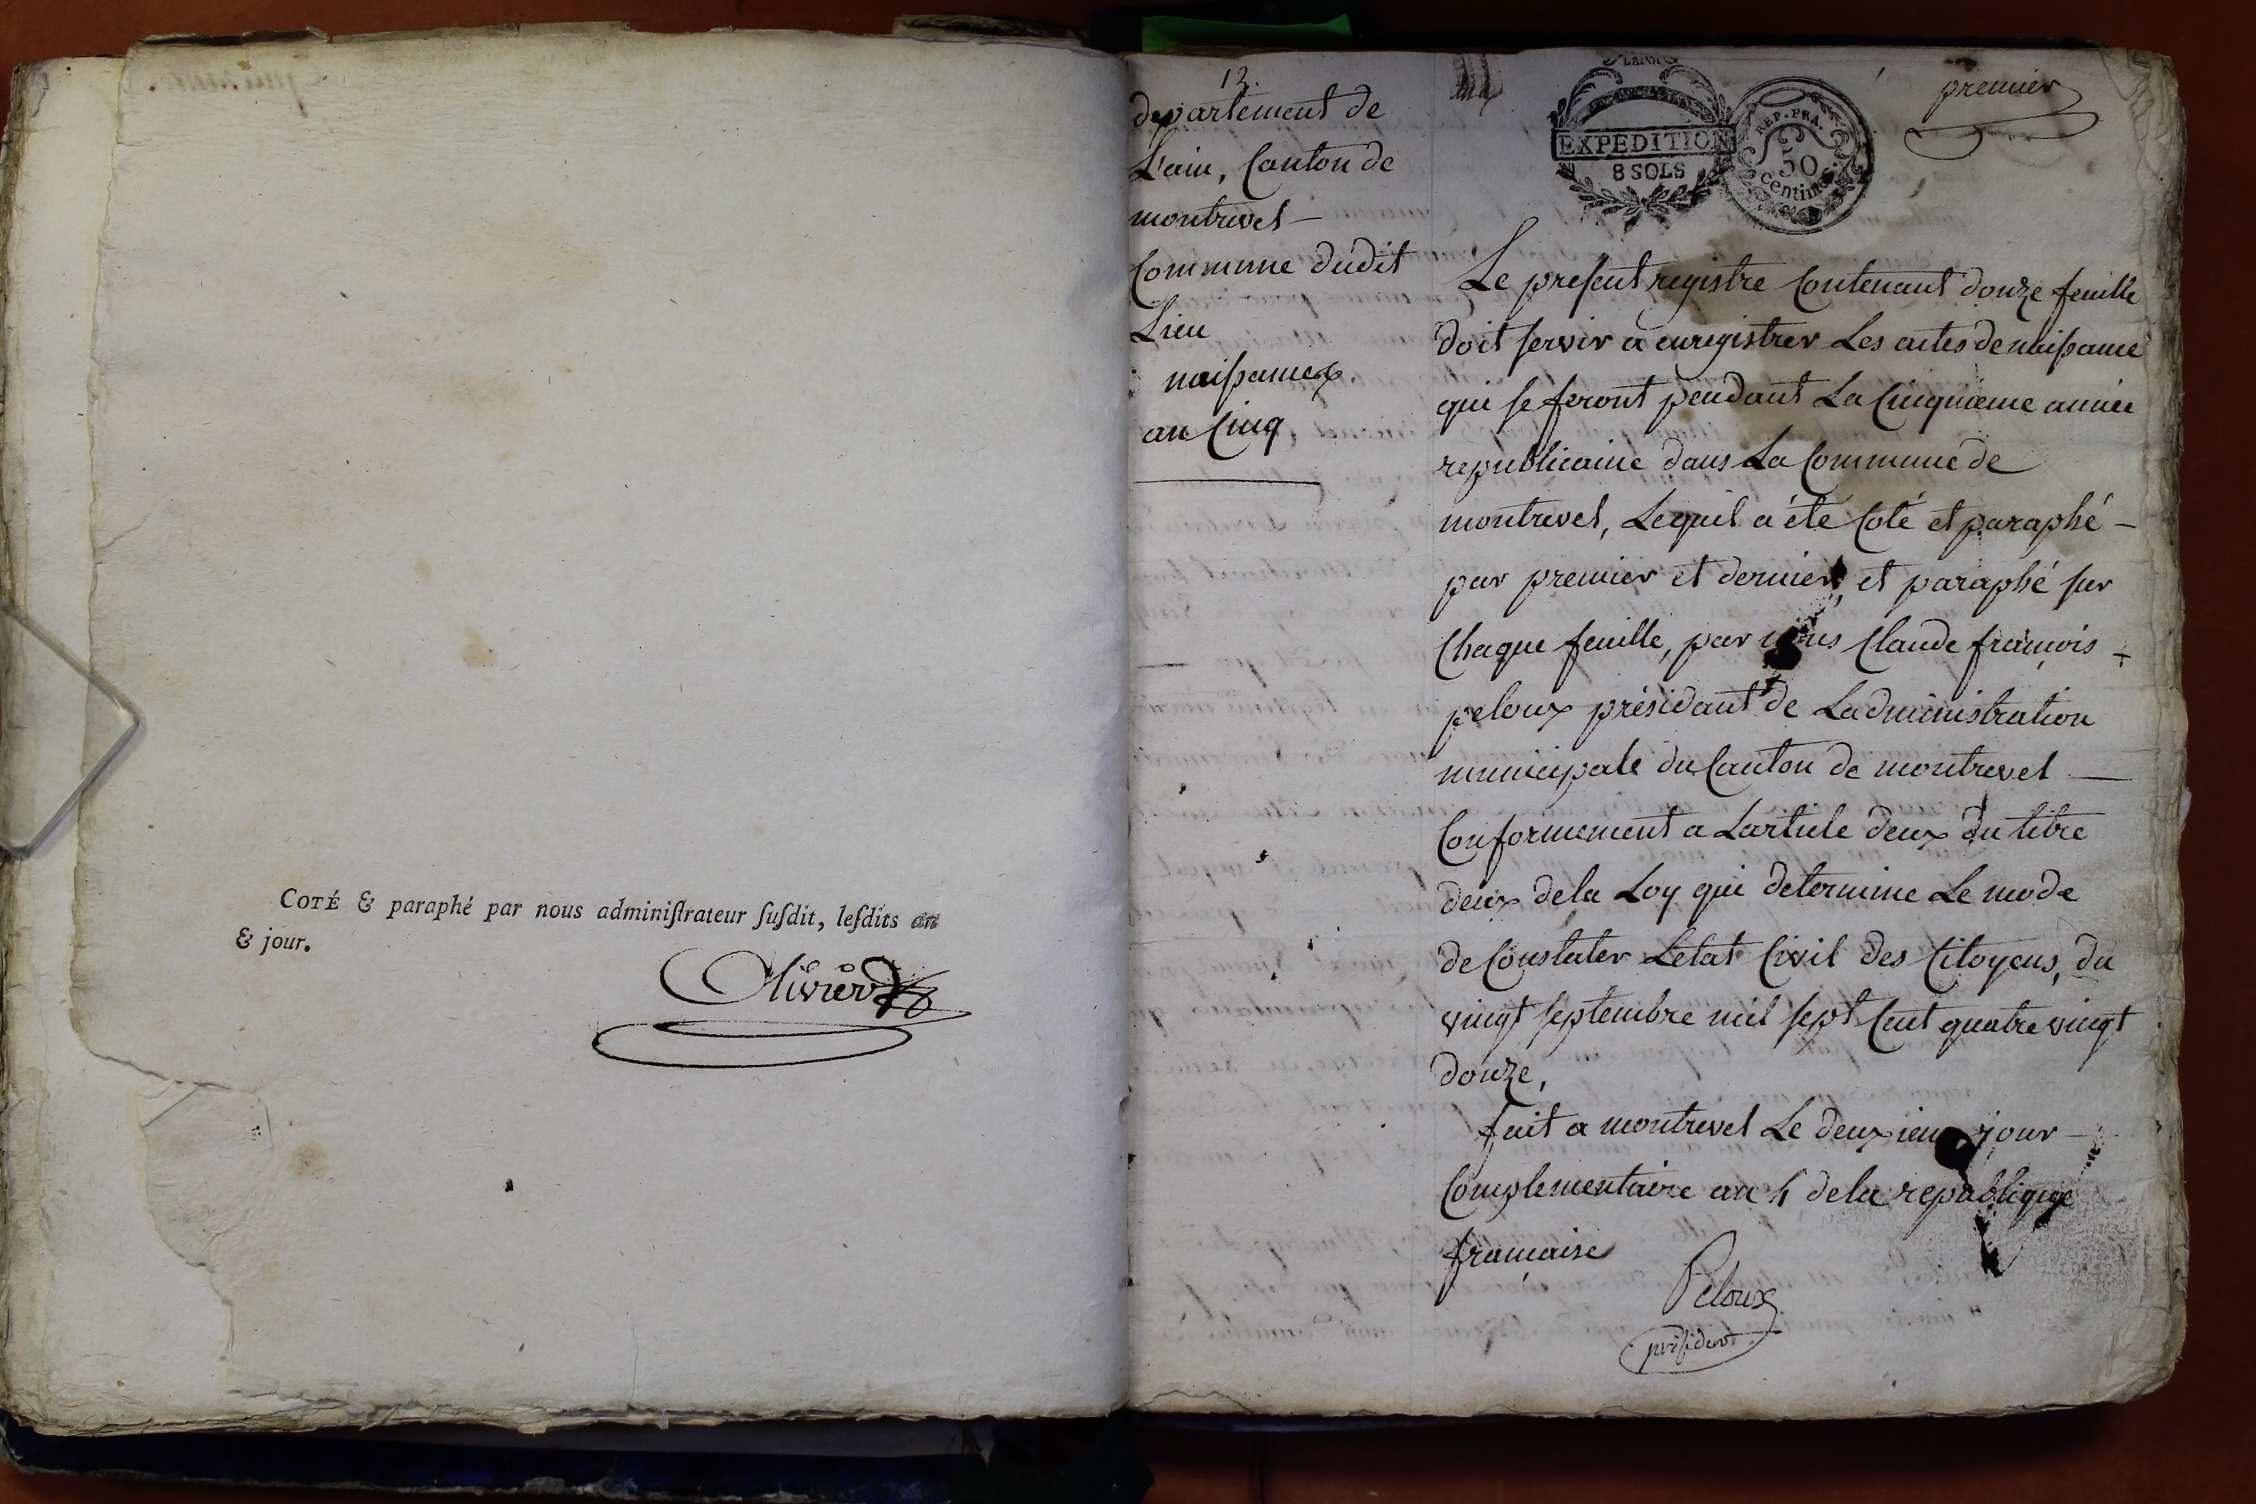 COTÉ & paraphé par nous adminiſtrateur ſuſdit, leſdits an
& jour.
Olivier
13.
departement de
L'ain, Canton de
montrevel
Commune dudit
Lieu
naissances
an Cinq
EXPEDITION
8 SOLS
REP. FRA.
50
centimes
premier
Le present registre Contenant douze feuille
doit servir a enregistrer Les actes de naissance
qui se feront pendant La Cinquieme année
republicaine dans La Commune de
montrevel, Lequel a été Coté et paraphé
par premier et dernier, et paraphé sur
Chaque feuille, par nous Claude françois
peloux présidant de Ladministration
municipale du Canton de montrevel
Conformement a Larticle deux du titre
deux dela Loy qui determine Le mode
de Constater Letat Civil des Citoyens, du
vingt septembre mil sept Cent quatre vingt
douze,
fait a montrevel Le deuxieme jour
Complementaire an 4 dela republique
française
Peloux
président